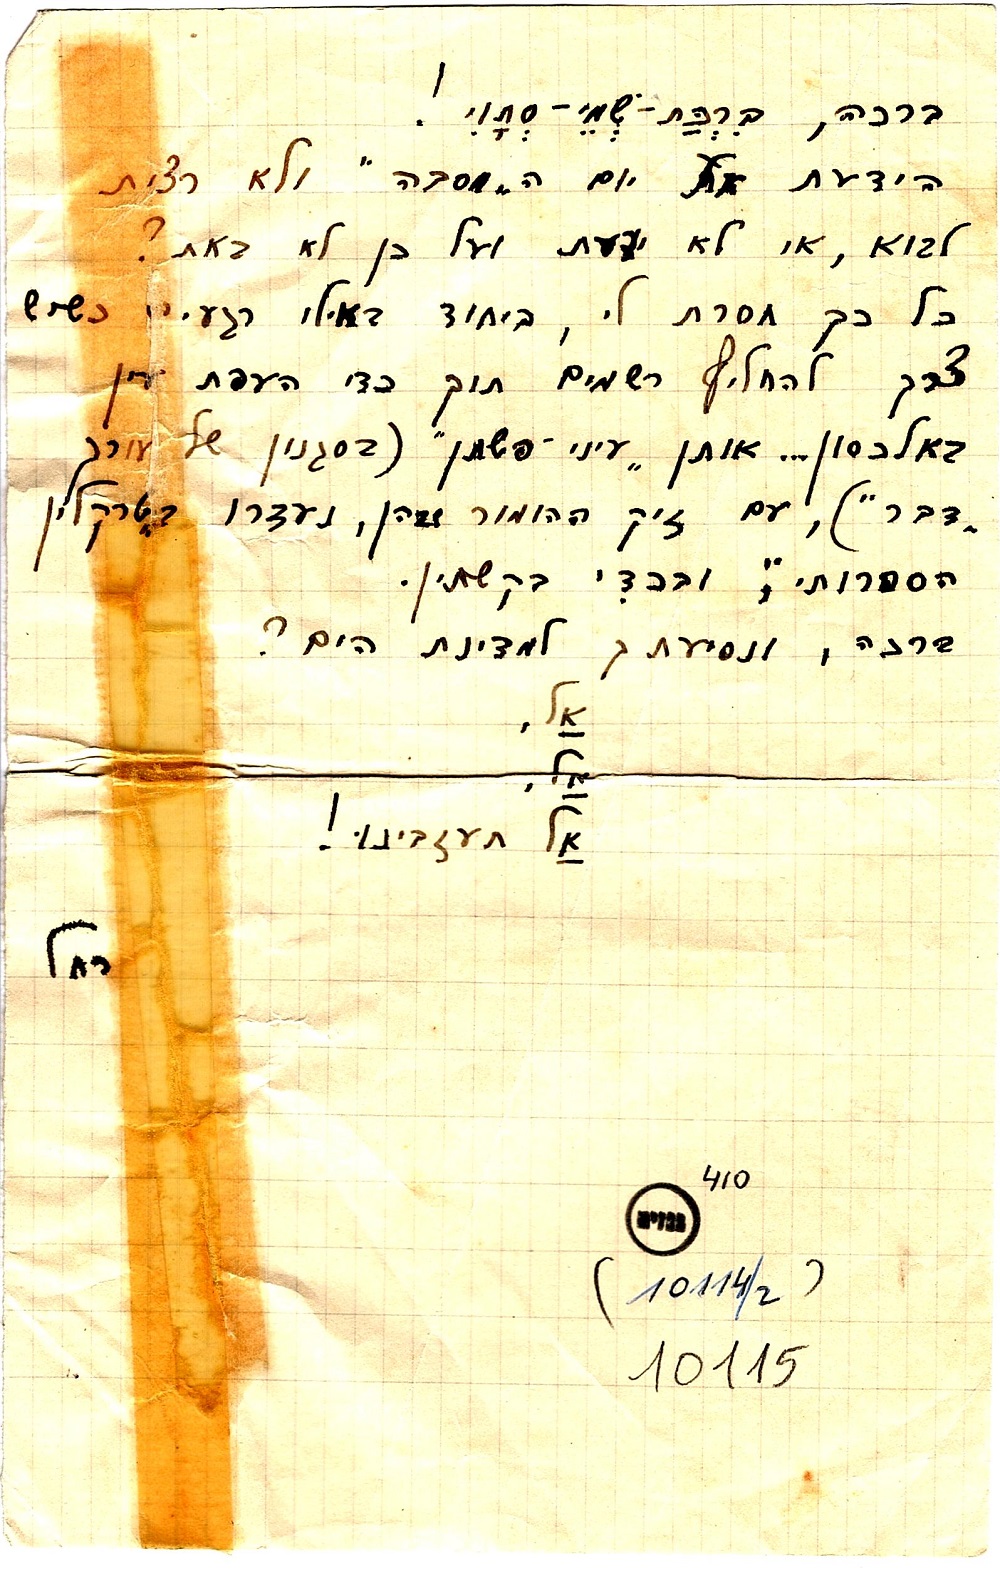 ברכה, בִּרְכַּת-שְׁמֵי-סְתָוִי!
הידעת את יום ה„מסבה" ולא רצית
לבוא, או לא ידעת ועל כן לא באת?
כל כך חסרת לי, ביחוד באילו רגעים כשיש
צרך להחליף רשמים תוך כדי העפת עין
באלכסון... אותן „עיני-פשתן" (בסגנון של עורך
„דבר"), עם זיק ההומור בהן, נעדרו בטרקלין
הספרותי", ובכדִי בקשתין.
ברכה, ונסיעתך למדינת הים?
אַל,
אַל,
אַל תעזבינו!
רחל
410
גנזים
(10114/2)
10115